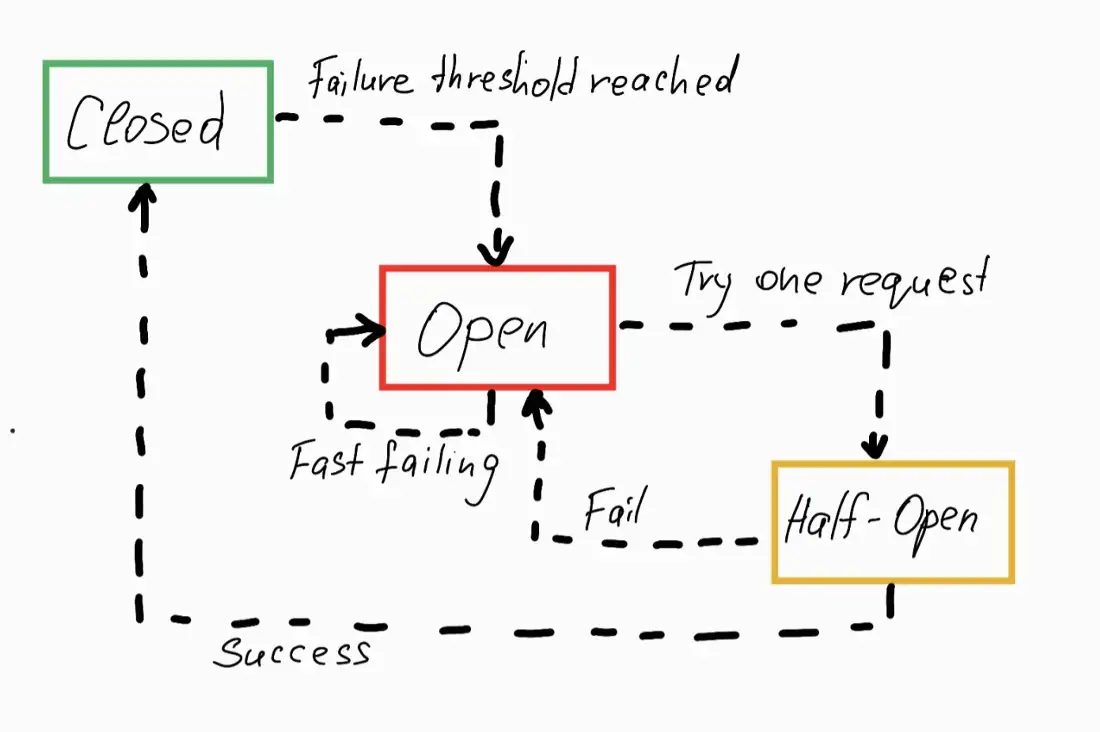 Failure threshold reached
Closed
Try one request
Open
Fast failing
Fail
Half-Open
Success